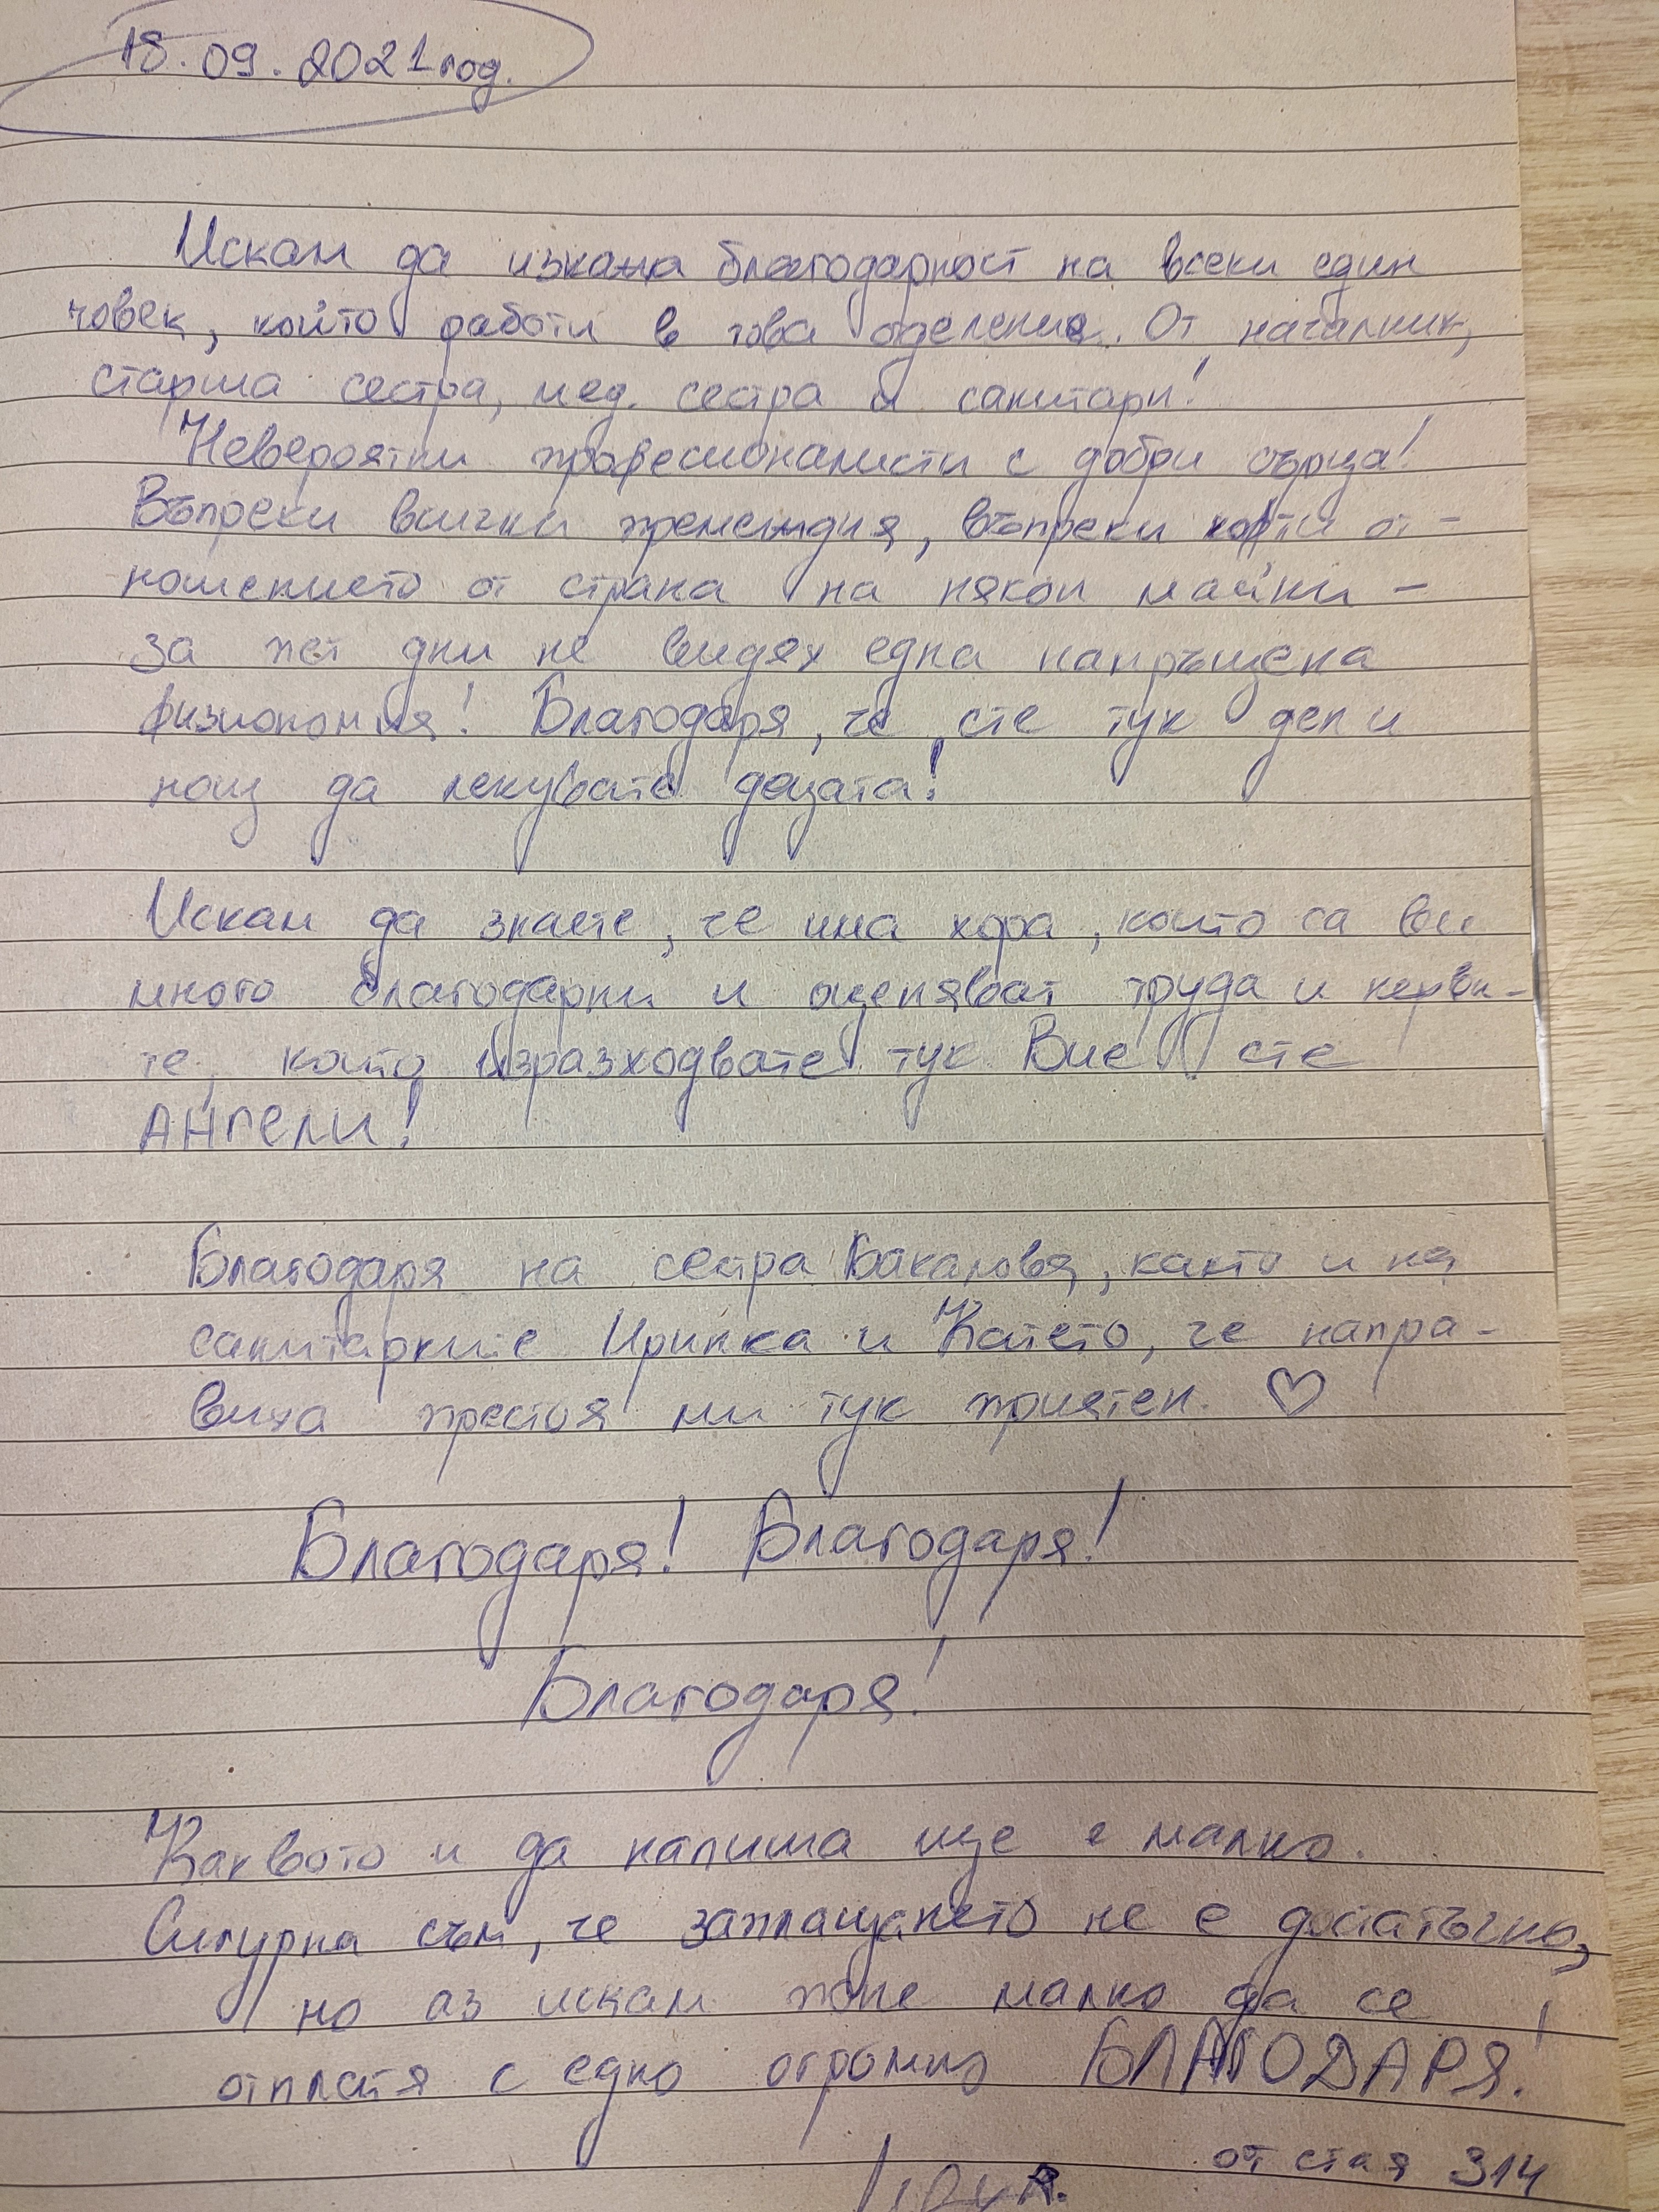 18.09.2021 год.
Искам да изкажа благодарност на всеки един
човек, който работи в това отделение. От началник,
старша сестра, мед. сестра и санитари!
Невероятни професионалисти с добри сърца!
Въпреки всички премеждия, въпреки от-
ношението от страна на някои майки -
за пет дни не видях една намръщена
физиономия! Благодаря, че сте тук ден и
нощ да лекувате децата!
Искам да знаете, че има хора, които са Ви
много благодарни и оценяват труда и нерви-
те, които изразходвате тук Вие сте
АНГЕЛИ!
Благодаря на сестра Бакалова, както и на
санитарките Иринка и Катето, че напра-
виха престоя ми тук приятен ♡
Благодаря! Благодаря!
Благодаря!
Каквото и да напиша ще е малко.
Сигурна съм, че заплащането не е достатъчно,
но аз искам поне малко да се
отплатя с едно огромно БЛАГОДАРЯ!
от стая 314